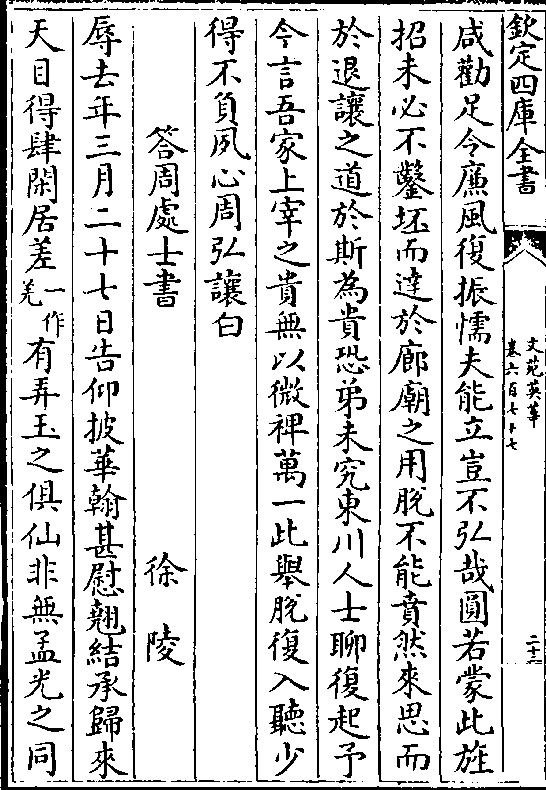 欽定四庫全書
文苑英華
卷六百七十七
二十二
咸勸足今廉風復振懦夫能立豈不弘哉圓若蒙此旌
招未必不鑿坯而達於廊廟之用脫不能賁然來思而
於退讓之道於斯為貴恐弟未究東川人士聊復起予
今言吾家上宰之貴無以微裨萬一此舉脫復入聽少
得不負夙心周弘讓白
答周處士書 徐陵
辱去年三月二十七日告仰披華翰甚慰翹結承歸來
天目得肆閑居差一作羌有弄玉之俱仙非無孟光之同